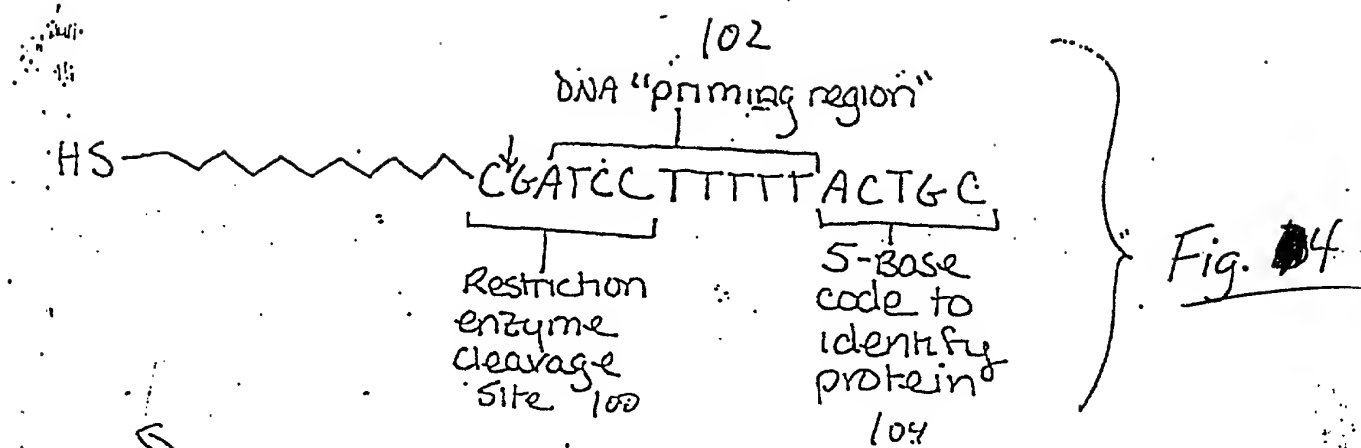 102
DNA "priming region"
HS
CGATCC TTTTT ACTGC
Restriction
enzyme
cleavage
site 100
5-Base
code to
identify
protein
104
Fig. 4